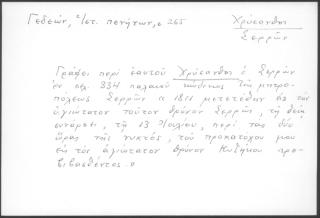 Γεδεών, 2/στ. πενήτων, σ 265
Χρύσανθος
Σερρῶν
Γράφει περὶ ἑαυτοῦ Χρύσανθος ὁ Σερρῶν
ἐν σελ. 334 παλαιοῦ κώδικος τῆς μητρο-
πόλεως Σερρῶν "1811 μετετέθην εἰς τὸν
ἁγιώτατον τοῦτον θρόνον Σερρῶν, τῇ θείᾳ
συνάρσει, τῇ 13 Ἰουλίου, περὶ τὰς δύο
ὥρας τῆς νυκτός, τοῦ προκατόχου μου
εἰς τὸν ἁγιώτατον θρόνον Κυζίκου προ-
βιβασθέντος."